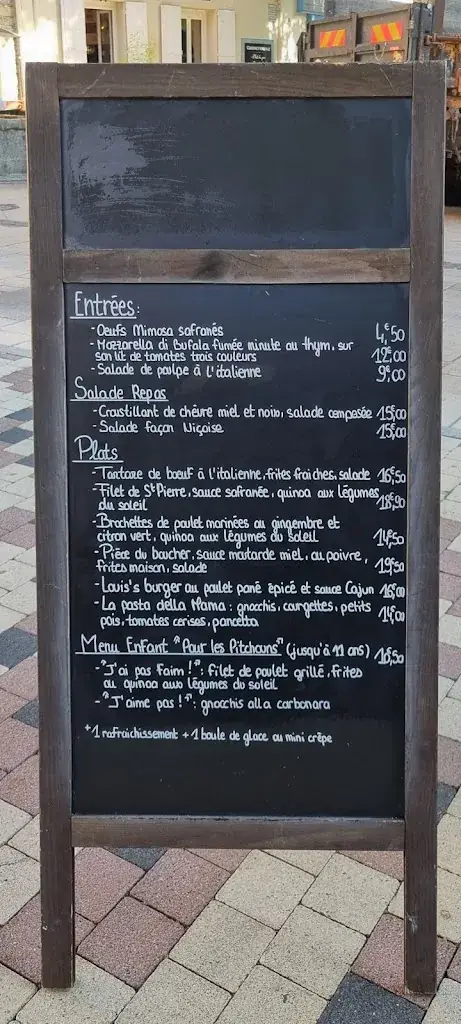 Entrées:
- Oeufs Mimosa safranés 4,€50
- Mozzarella di Bufala fumée minute au thym, sur
son lit de tomates trois couleurs 12,€00
- Salade de poulpe à l'italienne 9,€00
Salade Repas
- Croustillant de chèvre miel et noix, salade composée 15,€00
- Salade façon Niçoise 15,€00
Plats
- Tartare de bœuf à l'italienne, frites fraiches, salade 16,€50
- Filet de St Pierre, sauce safranée, quinoa aux légumes
du soleil 18,€90
- Brochettes de poulet marinées au gingembre et
citron vert, quinoa aux légumes du soleil 14,€50
- Pièce du boucher, sauce moutarde miel, ou poivre,
frites maison, salade 19,€50
- Louis's burger au poulet pané épicé et sauce Cajun 16,€00
- La pasta della Mama : gnocchis, courgettes, petits
pois, tomates cerises, pancetta 14,€00
Menu Enfant "Pour les Pitchouns" (jusqu'à 11 ans) 10,€50
- "J'ai pas Faim !": filet de poulet grillé, frites
ou quinoa aux légumes du soleil
- "J'aime pas !": gnocchis alla carbonara
+ 1 rafraichissement + 1 boule de glace ou mini crêpe